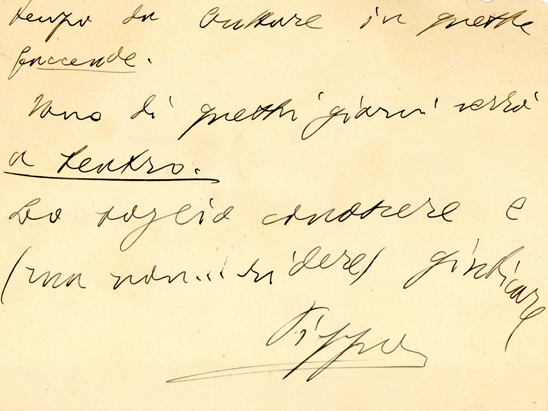 tempo da buttare in queste
faccende.
Uno di questi giorni verrò
a teatro.
Lo voglio conoscere e
(ma non... ridere) giudicare
Pippo